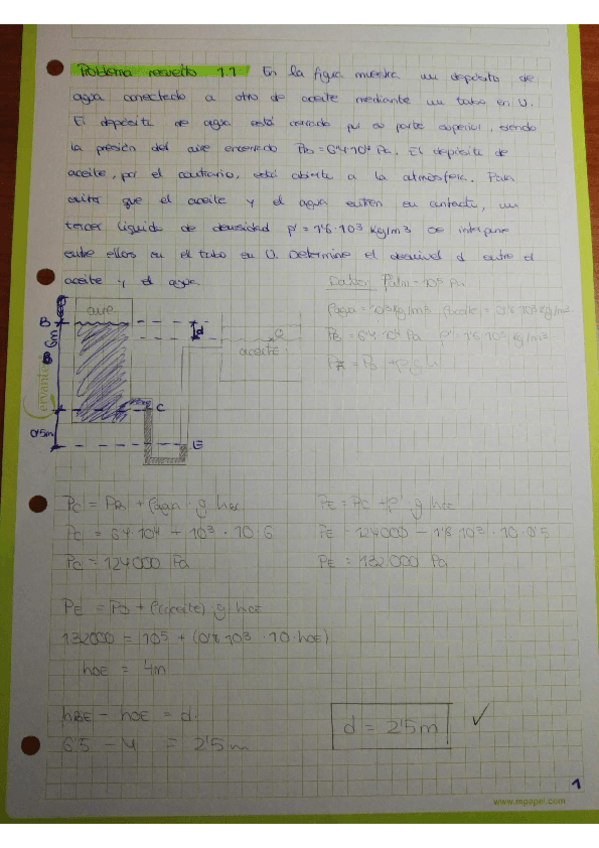 Problema resuelto 1.1 En la figura muestra un depósito de
agua conectado a otro de aceite mediante un tubo en U.
El depósito de agua está cerrado por su parte superior, siendo
la presión del aire encerrado PB = 6'4·10⁴ Pa. El depósito de
aceite, por el contrario, está abierto a la atmósfera. Para
evitar que el aceite y el agua entren en contacto, un
tercer líquido de densidad ρ' = 1'6·10³ kg/m³ se interpone
entre ellos en el tubo en U. Determine el desnivel d entre el
aceite y el agua.
Datos: Patm = 10⁵ Pa
ρagua = 10³ kg/m³ ρaceite = 0'8·10³ kg/m³
PB = 6'4·10⁴ Pa ρ' = 1'6·10³ kg/m³
aire
B
6m
d
aceite
C
0'5m
E
Pc = PB + ρagua · g hBC
PE = PC + ρ' · g hCE
Pc = 6'4·10⁴ + 10³ · 10 · 6
PE = 124000 + 1'6·10³ · 10 · 0'5
Pc = 124000 Pa
PE = 132000 Pa
PE = PD + (ρaceite) · g hDE
132000 = 10⁵ + (0'8·10³ · 10 · hDE)
hDE = 4m
hBE - hDE = d
6'5 - 4 = 2'5 m
d = 2'5 m ✓
1
www.mpapel.com